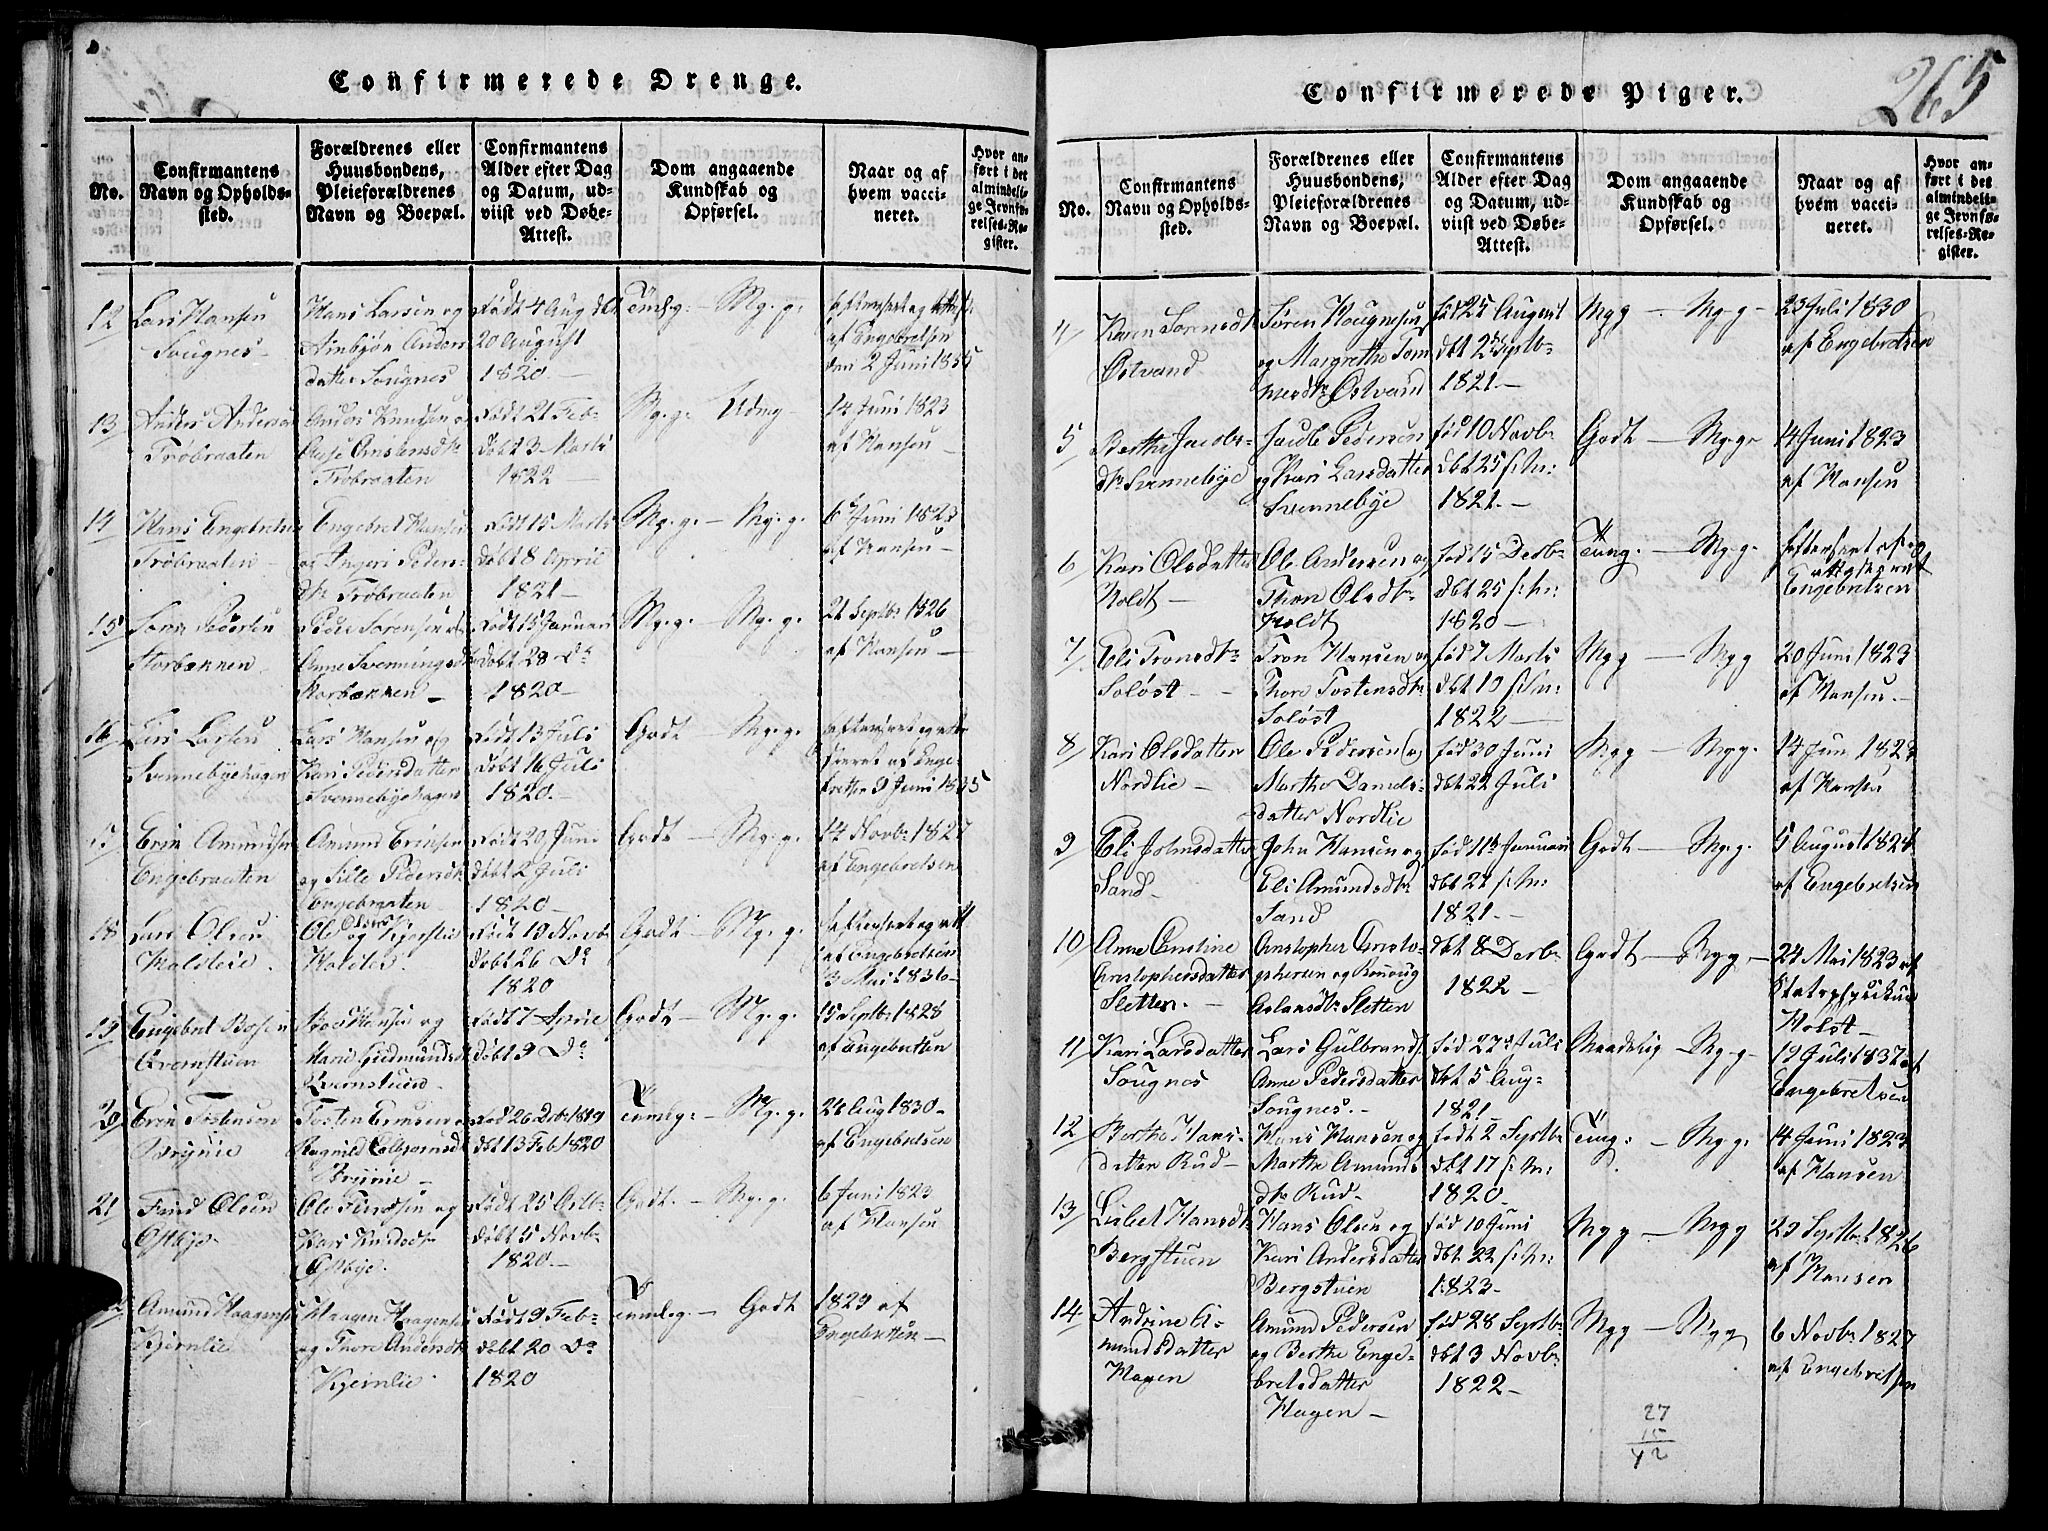 Confirmerede Drenge.
No.
Confirmantens
Navn og Opholds-
sted.
Forældrenes eller
Huusbondens,
Pleieforældrenes
Navn og Boepæl.
Confirmantens
Alder efter Dag
og Datum, ud-
viist ved Døbe-
Attest.
Dom angaaende
Kundskab og
Opførsel.
Naar og af
hvem vacci-
neret.
Hvor an-
ført i det
almindeli-
ge Jevnfø-
relses-Re-
gister.
12
Lars Hansen
Sougnes
Hans Larsen og
datter Sougnes
Født 4 Aug dbt
20 August
1820.
Mg. g.
af Engebretsen
den 2 Juni 1835
13
Anders Anders
Trøbraaten
Anders Knudsen
Trøbraaten
Født 21 Feb-
Døbt 3 Marts
1822
Mg. g.
Udmg
14 Juni 1823
af Hansen
14
Hans Engebretsen
Trøbraaten
Engebret Hansen
og Ingeri Peders-
dtr Trøbraaten
Født 15 Marts
Døbt 8 April
1821
Mg. g. - Mg. g.
6 Juni 1823
af Hansen
15
Søren Pedersen
Storbækken
Peder Sørensen
Anne Svenningsdtr
Storbækken
Født 15 Januari
Døbt 28 Do
1820
Mg. g. - Mg. g.
21 Septbr 1826
af Hansen
16
Lars Larsen
Svennebyehagen
Lars Hansen og
Kari Pedersdatter
Svennebyehagen
Født 13 Juli
Døbt 16 Juli
1820.
Godt - Mg. g.
9 Juni 1835
17
Erik Amundsen
Engebraaten
Amund Eriksen
og Sille Pedersdtr
Engebraaten
Født 20 Juni
Døbt 2 Juli
1820
Godt - Mg. g.
14 Novbr 1827
af Engebretsen
18
Lars Olsen
Ole
og Kjerstie
Født 19 Novb
Døbt 26 Do
1820
Godt - Mg. g.
af Engebretsen
3 Mai 1836
19
Engebret Boesen
Qvernstuen
Boe Hansen og
Marie Gudmundsdtr
Qvernstuen
Født 7 April
Døbt 9 Do
Godt - Mg. g.
15 Septbr 1828
af Engebretsen
20
Erik Tostensen
Brynie
Tosten Eriksen
Bryinie
Fød 26 Decbr 1819
dbt 13 Feb 1820
Temlig - Mg. g.
24 Aug 1830
af Engebretsen
21
Find Olsen
Østbye
Ole Findsen og
Kari Knudsdtr
Østbye
Født 25 Octb-
Døbt 5 Novbr
1820.
Godt. - Mg. g.
6 Juni 1823
af Hansen
Amund Haagensen
Kjernlie
Haagen Haagensen
og Thore Andersdtr
Kjernlie
Født 9 Feb-
døbt 20 Do
1820
Temleg. - Godt
1823 af
Engebretsen
Confirmerede Piger.
265
No.
Confirmantens
Navn og Opholds-
sted.
Forældrenes eller
Huusbondens,
Pleieforældrenes
Navn og Boepæl.
Confirmantens
Alder efter Dag
og Datum, ud-
viist ved Døbe-
Attest.
Dom angaaende
Kundskab og
Opførsel.
Naar og af
hvem vacci-
neret.
Hvor an-
ført i det
almindeli-
ge Jevnfø-
relses-Re-
gister.
4
Karen Sørensdtr
Østvand
Søren Haagensen
og Margrethe Tom
Østvand
fød 25 August
dbt 23 Septb-
1821.
Mg g - Mg. g
23 Juli 1830
af Engebretsen
5
Berthe Jacobs-
dtr Svennebye
Jacob Pedersen
og Kari Larsdatter
Svennebye
fød 10 Novbr
dbt 25 s: M:
1821.
Godt - Mg. g
14 Juni 1823
af Hansen
6
Kari Olsdatter
Holdt
Ole Andersen og
Thore Olsdtr
Holdt
fød 15 Decbr
dbt 25 s: M:
1820
Teng. - Mg. g.
Engebretsen
7
Eli Tronsdtr
Soløst
Tron Hansen og
Thore Tostensdtr
Soløst
fød 7 Marts
dbt 10 s: M:
1822
Mg g - Mg g
20 Juni 1823
af Hansen
8
Kari Olsdatter
Nordlie
Ole Pedersen og
Marthe Daniels-
datter Nordlie
fød 30 Juni
dbt 22 Juli
Mg g - Mg g.
14 Juni 1823
af Hansen
9
Eli Johnsdatter
Sand
John Hansen og
Eli Amundsdtr
Sand
fød 11te Januari
dbt 21 s: M:
1821.
Godt - Mg. g.
5 August 1824
af Engebretsen
10
Anne Cristine
Cristophersdatter
Sletten.
Cristopher Cristo-
phersen og Rønnoug
Aslaksdtr Sletten
dbt 8 Decb-
1822
Godt - Mg g
24 Mai 1823 af
Holst
11
Kari Larsdatter
Sougnes
Lars Gulbrands
Anne Pedersdatter
Sougnes.
fød 27de Juli
dbt 5 Aug-
1821
Maadelig - Mg. g
19 Juli 1837 af
Engebretsen
12
Berthe Hans-
datter Rud
Hans Hansen og
Marthe Amunds
dtr Rud
født 2 Septbr
dbt 17 s: M:
1820.
Teng: - Mg. g.
14 Juni 1823
af Hansen
13
Lisbet Hansdtr
Bergstuen
Hans Olsen og
Kari Andersdatter
Bergstuen
fød 10 Juni
dbt 22 s: M:
1823
Mg g. - Mg g
23 Septbr 1826
af Hansen
14
Andrine A-
mundsdatter
Hagen
Amund Pedersen
og Berthe Enge-
bretsdatter
Hagen
fød 28 Septbr
dbt 3 Novbr
1822
Mg g - Mg g
6 Novbr 1827
af Engebretsen
27
15
42